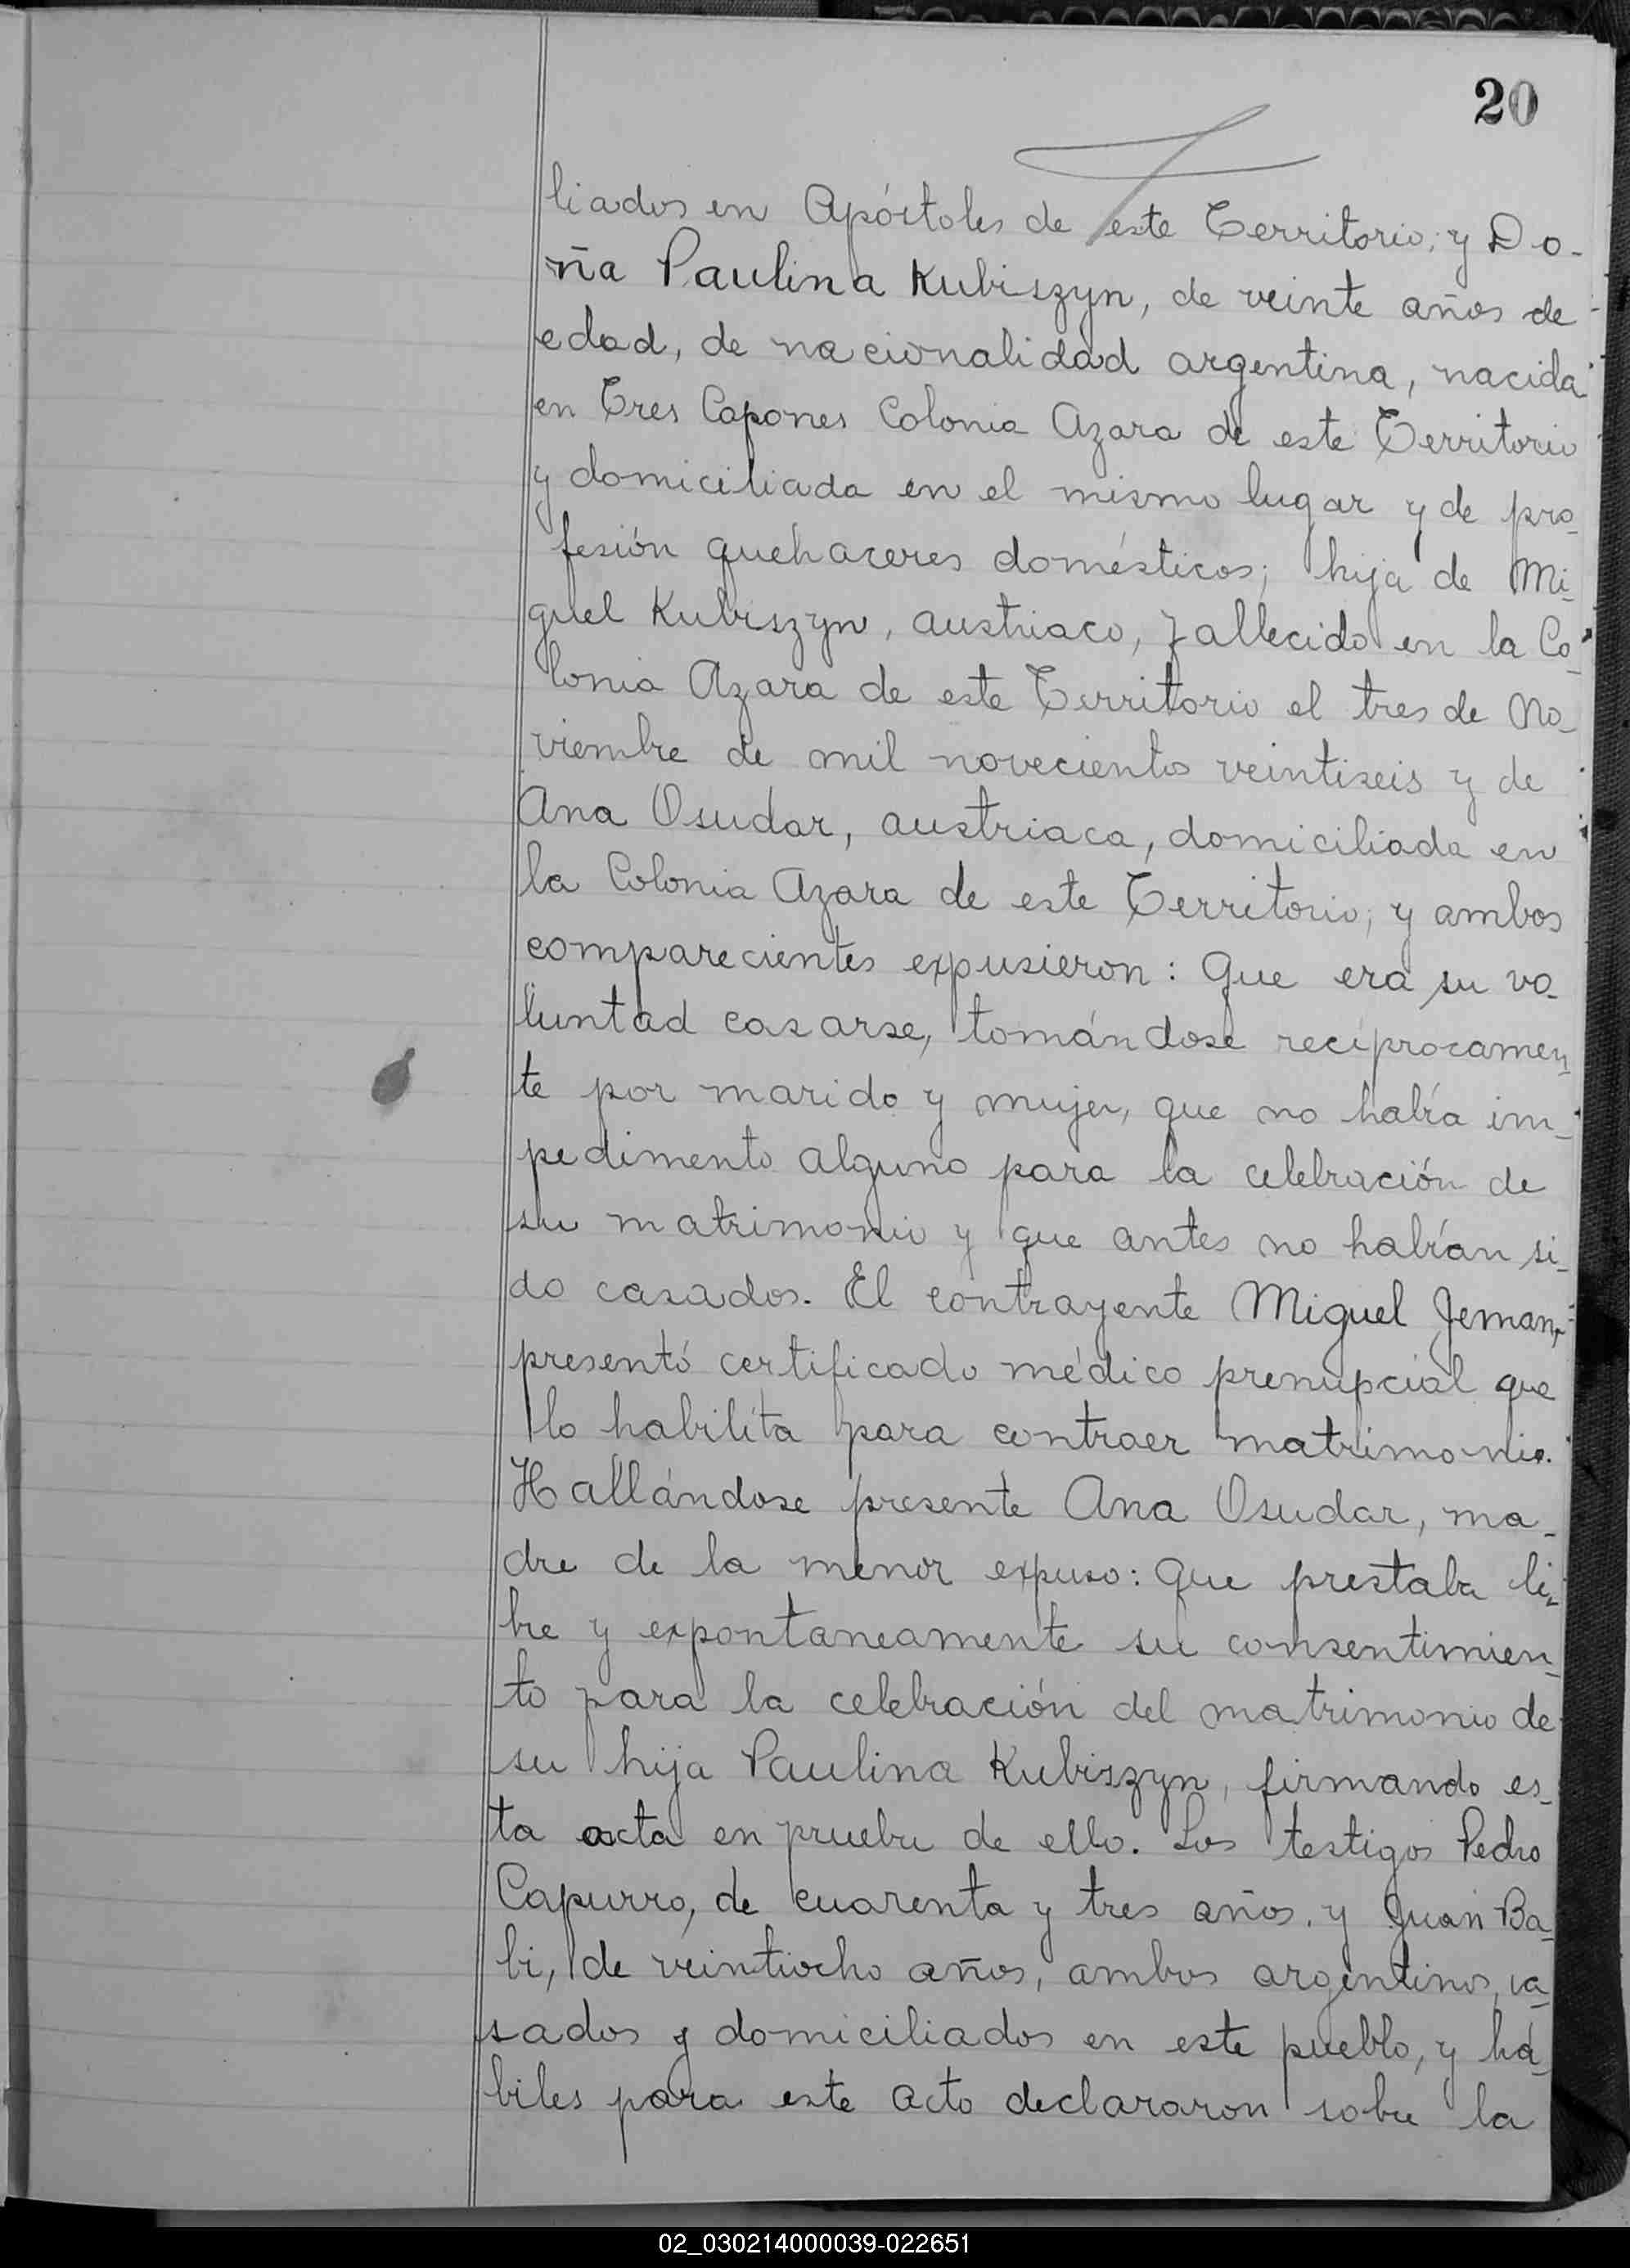 20
liados en Apóstoles de este Territorio; y Do-
ña Paulina Kubiszyn, de veinte años de
edad, de nacionalidad argentina, nacida
en Tres Capones Colonia Azara de este Territorio
y domiciliada en el mismo lugar y de pro-
fesión quehaceres domésticos; hija de Mi-
guel Kubiszyn, austriaco, fallecido en la Co-
lonia Azara de este Territorio el tres de No-
viembre de mil novecientos veintiseis y de
Ana Osudar, austriaca, domiciliada en
la Colonia Azara de este Territorio; y ambos
comparecientes expusieron: Que era su vo-
luntad casarse, tomándose recíprocamen-
te por marido y mujer, que no había im-
pedimento alguno para la celebración de
su matrimonio y que antes no habían si-
do casados. El contrayente Miguel Jeman,
presentó certificado médico prenupcial que
lo habilita para contraer matrimonio.
Hallándose presente Ana Osudar, ma-
dre de la menor expuso: Que prestaba li-
bre y expontaneamente su consentimien-
to para la celebración del matrimonio de
su hija Paulina Kubiszyn, firmando es-
ta acta en prueba de ello. Los testigos Pedro
Capurro, de cuarenta y tres años, y Juan Ba-
bi, de veintiocho años, ambos argentinos, ca-
sados y domiciliados en este pueblo, y há-
biles para este acto declararon sobre la
02_030214000039-022651